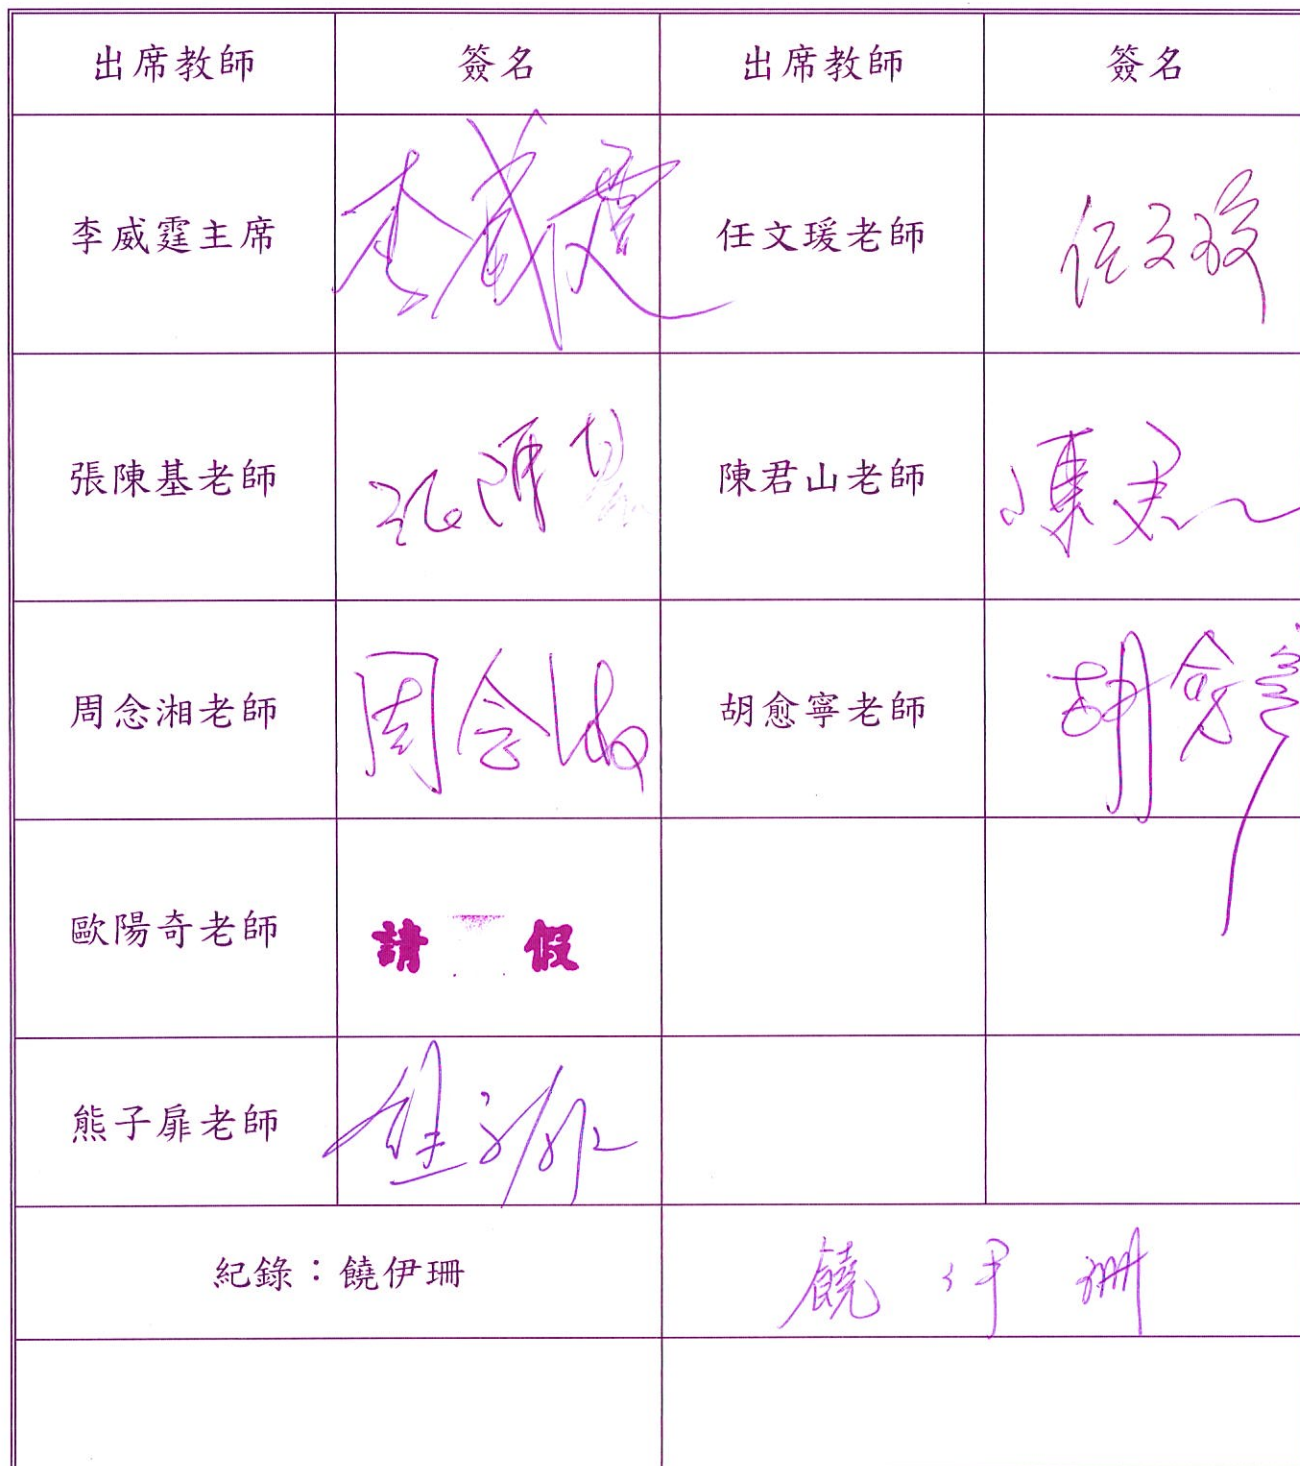 出席教師 簽名 出席教師 簽名
李威霆主席 李威霆 任文瑗老師 任文瑗
張陳基老師 張陳基 陳君山老師 陳君山
周念湘老師 周念湘 胡愈寧老師 胡愈寧
歐陽奇老師 請 假
熊子扉老師 熊子扉
紀錄：饒伊珊 饒伊珊